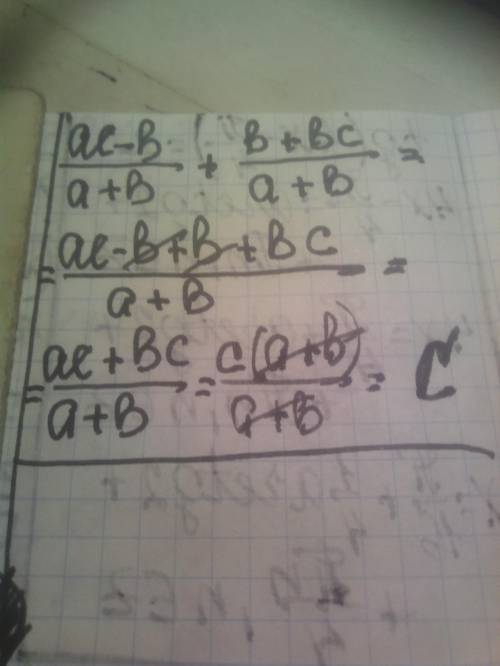 (ac-b)/(a+b) + (b+bc)/(a+b) =
= (ac-b+b+bc)/(a+b) =
= (ac+bc)/(a+b) = c(a+b)/(a+b) = C